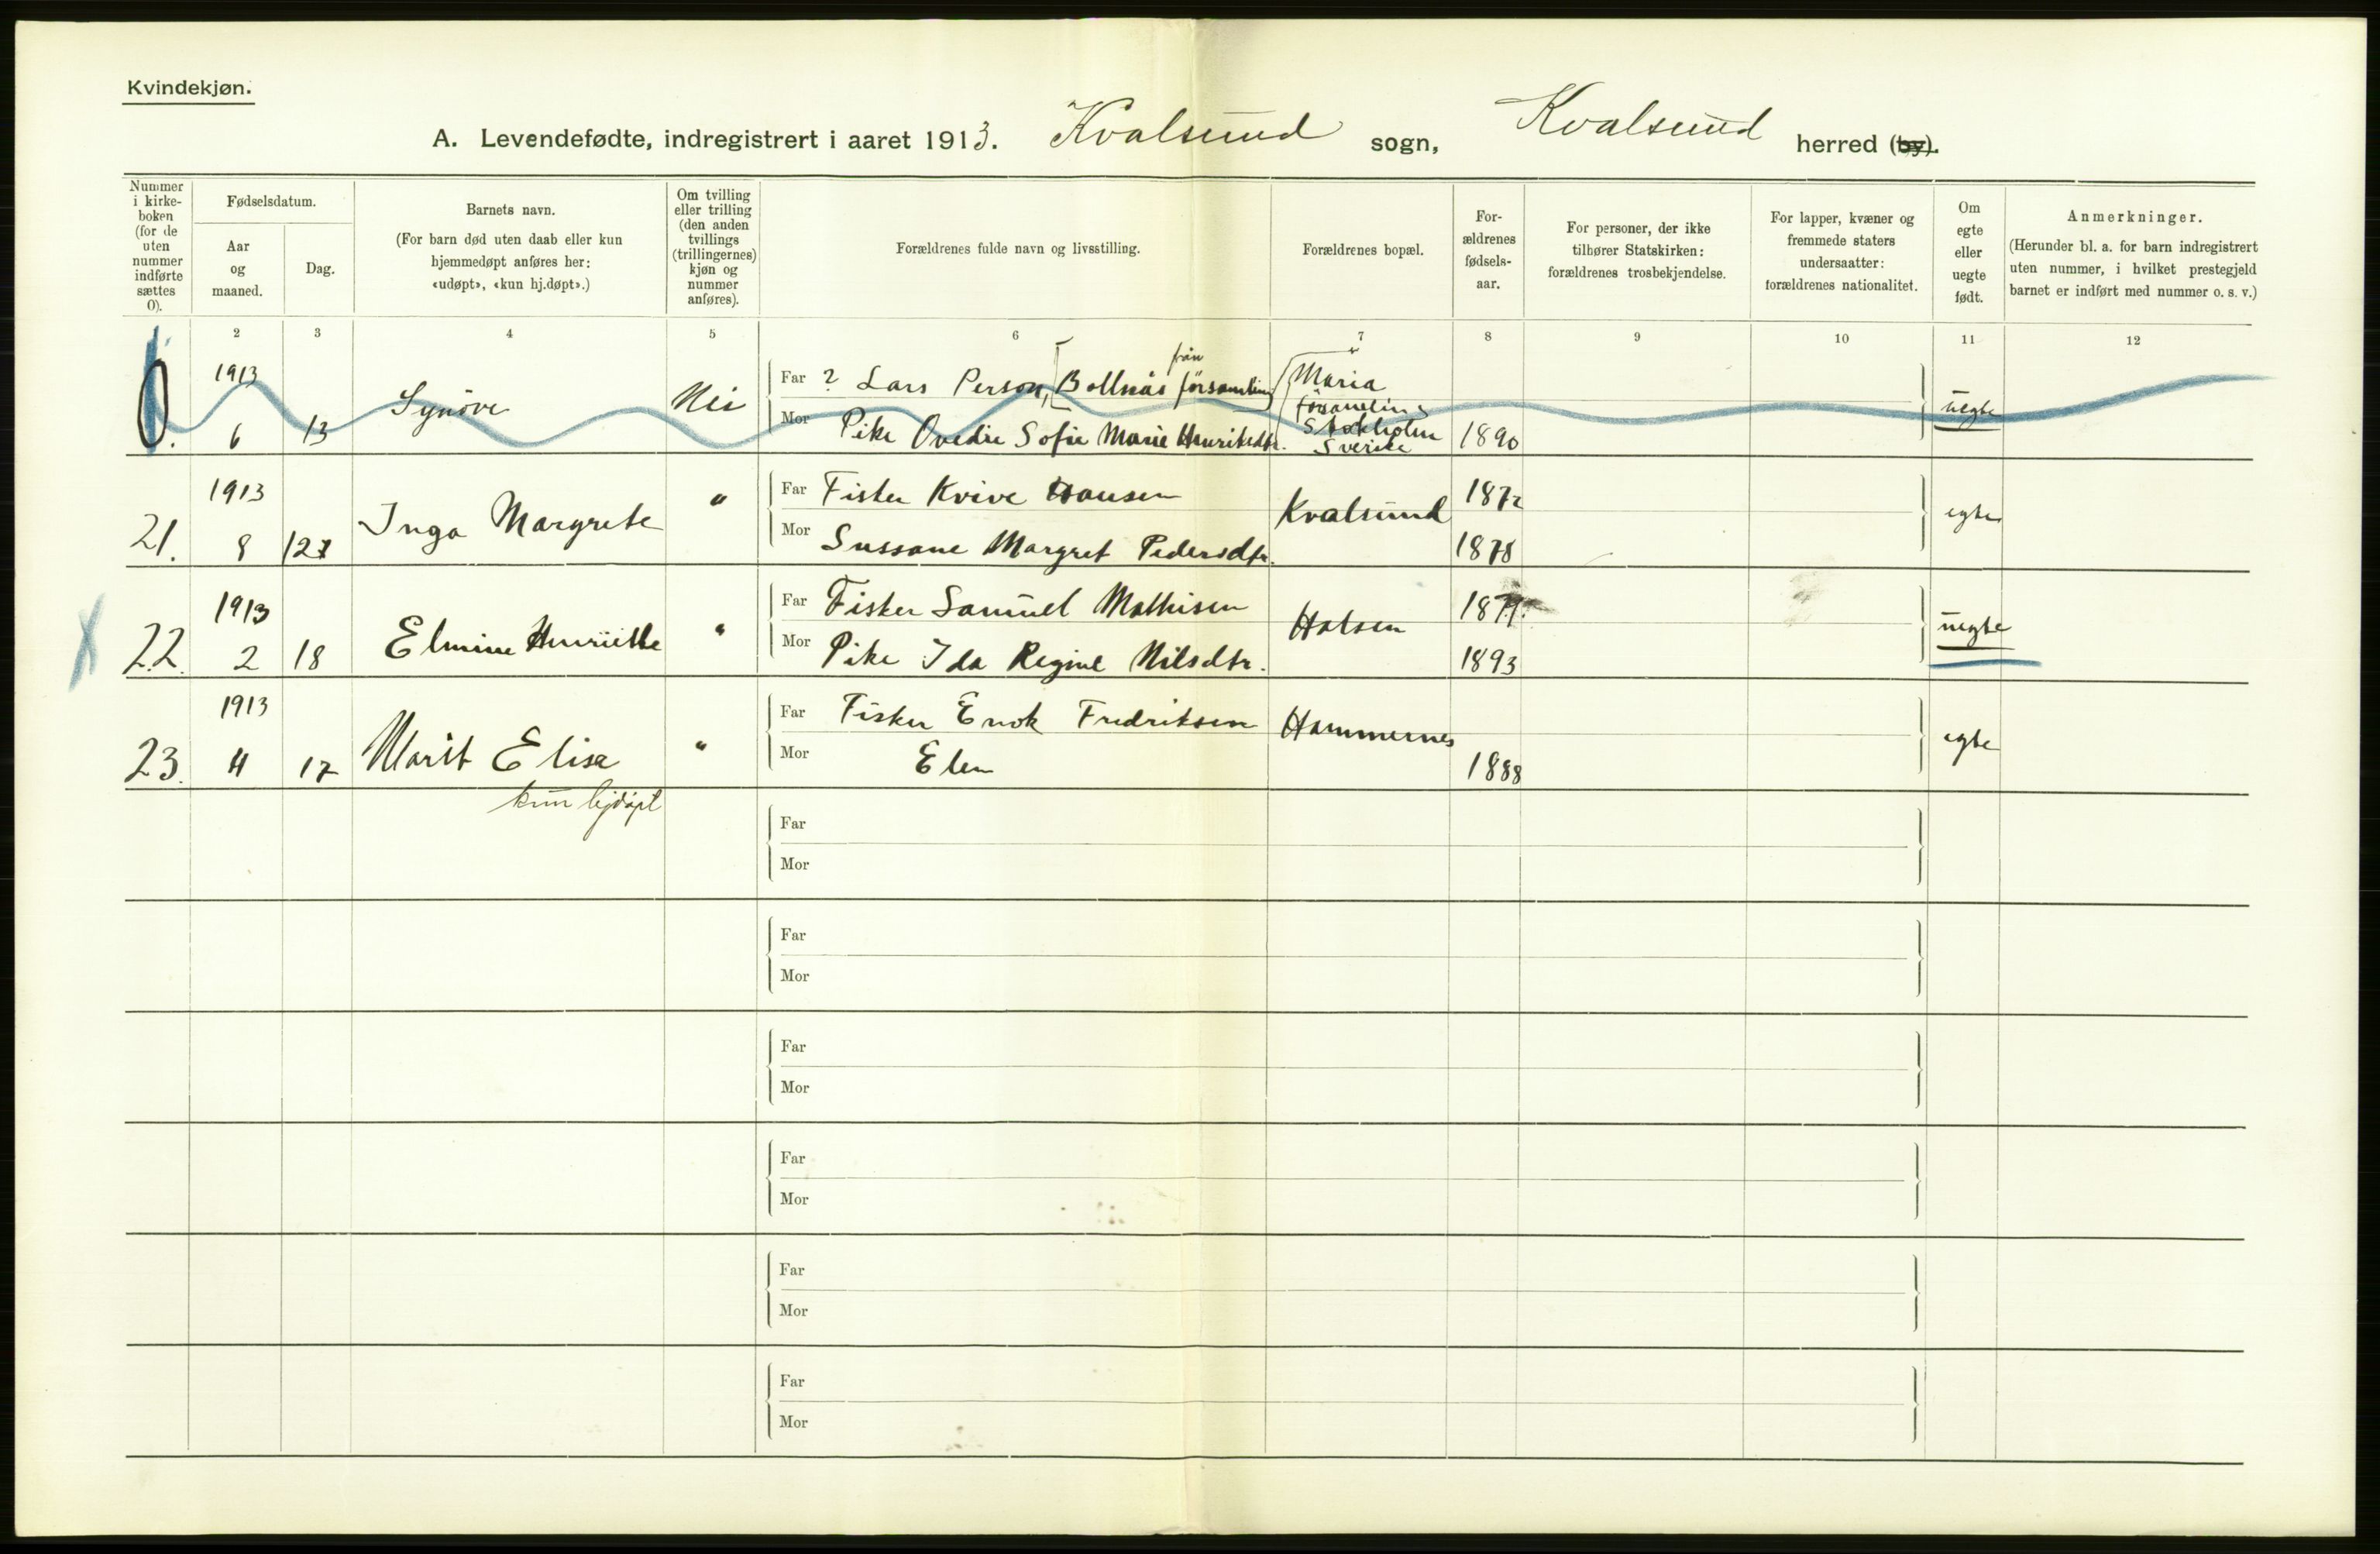 Kvindekjøn.
A. Levendefødte, indregistrert i aaret 1913. Kvalsund sogn, Kvalsund herred (by).
Nummer i kirke-boken (for de uten nummer indførte sættes 0).
Fødselsdatum.
Aar og maaned.
Dag.
Barnets navn.
(For barn død uten daab eller kun hjemmedøpt anføres her: «udøpt», «kun hj.døpt».)
Om tvilling eller trilling (den anden tvillings (trillingernes) kjøn og nummer anføres).
Forældrenes fulde navn og livsstilling.
Forældrenes bopæl.
For-ældrenes fødsels-aar.
For personer, der ikke tilhører Statskirken: forældrenes trosbekjendelse.
For lapper, kvæner og fremmede staters undersaatter: forældrenes nationalitet.
Om egte eller uegte født.
Anmerkninger.
(Herunder bl. a. for barn indregistrert uten nummer, i hvilket prestegjeld barnet er indført med nummer o. s. v.)
2 3 4 5 6 7 8 9 10 11 12
0. 1913 6 13 Synöve Nei
Far ? Lars Person, [Bollnäs från församling
Mor Pike Ovedie Sofie Marie Henriksdtr.
Maria församling Stokholm Sverike
1890 uegte
21. 1913 8 127 Inga Margrete "
Far Fisker Kvive Hansen
Mor Sussane Margret Pedersdtr.
Kvalsund 1872 1878 egte
22. 1913 2 18 Elmine Henriette "
Far Fisker Samuel Mathisen
Mor Pike Ida Regine Nilsdtr.
Hatsen 1893 uegte
23. 1913 4 17 Marit Elisa "
kun hjdøpt
Far Fisker Enok Fredriksen
Mor Elen
Hammernes 1888 egte
Far
Mor
Far
Mor
Far
Mor
Far
Mor
Far
Mor
Far
Mor